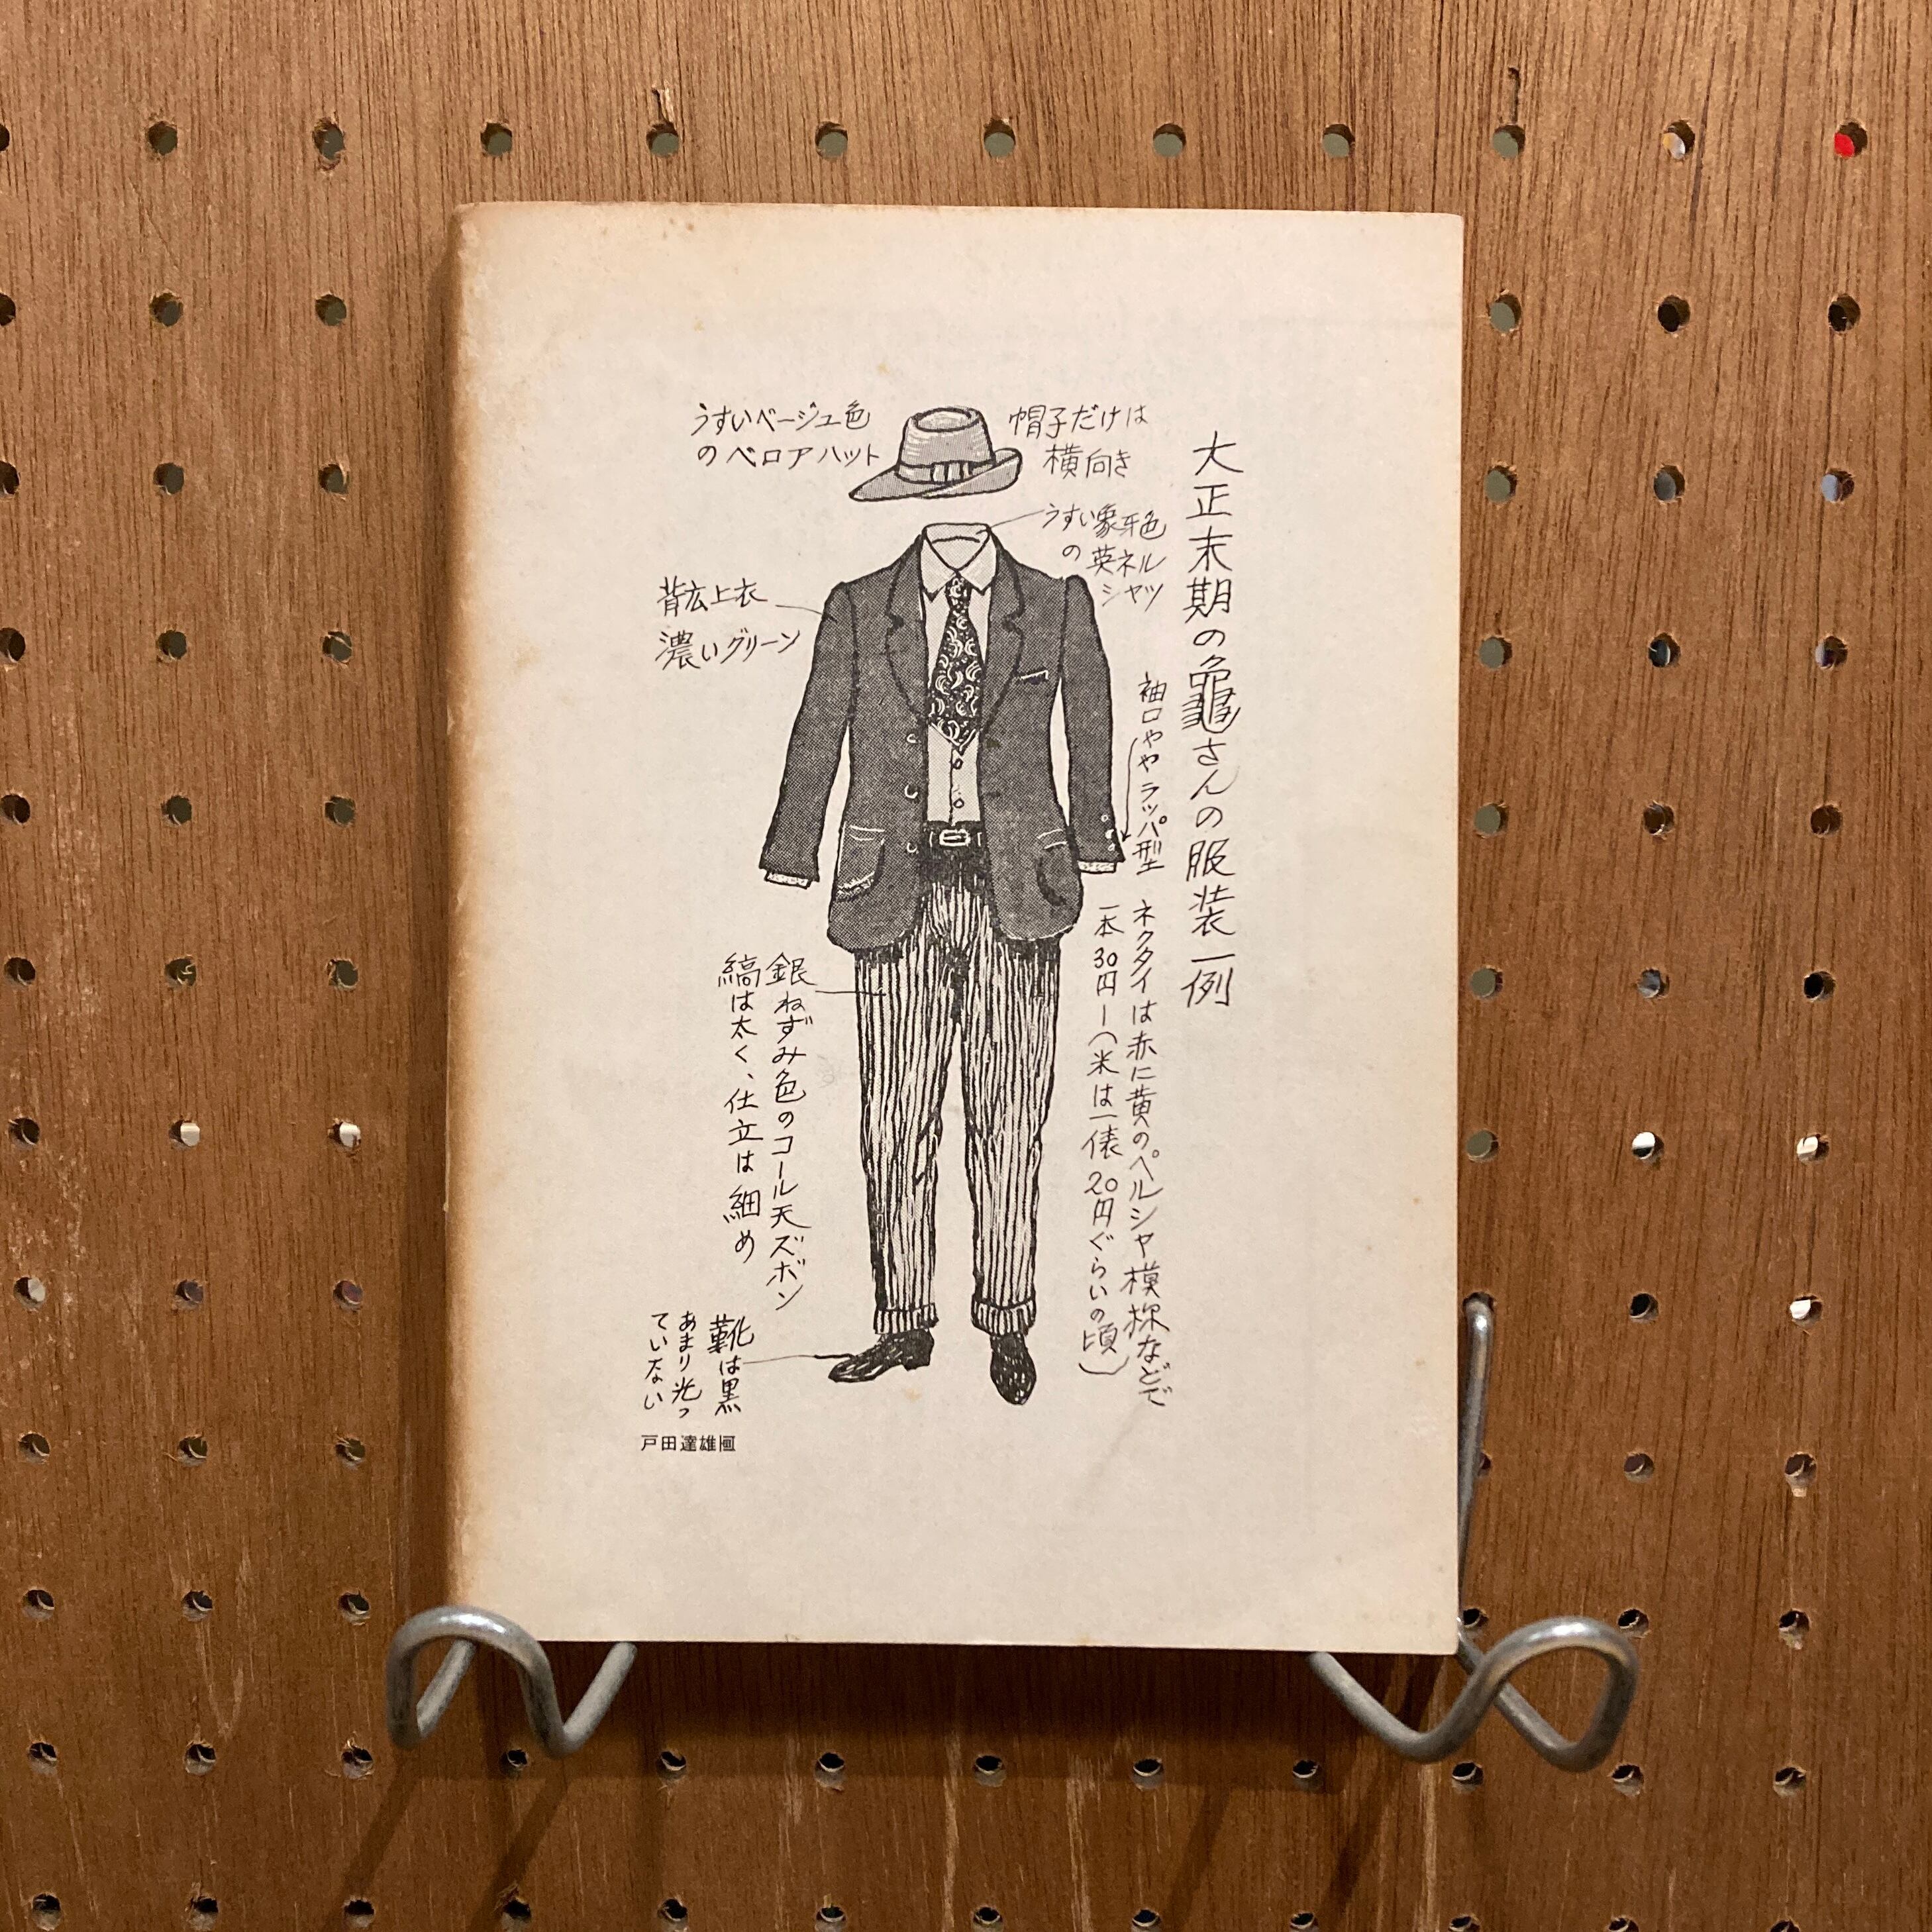 大正末期の龜さんの服装一例
帽子だけは
横向き
うすいベージュ色
のベロアハット
うすい象牙色
の英ネル
シャツ
背広上衣
濃いグリーン
袖口ややラッパ型
ネクタイは赤に黄のペルシャ模様などで
一本30円—(米は一俵20円ぐらいの頃)
銀ねずみ色のコール天ズボン
縞は太く、仕立は細め
靴は黒
あまり光っ
ていない
戸田達雄画